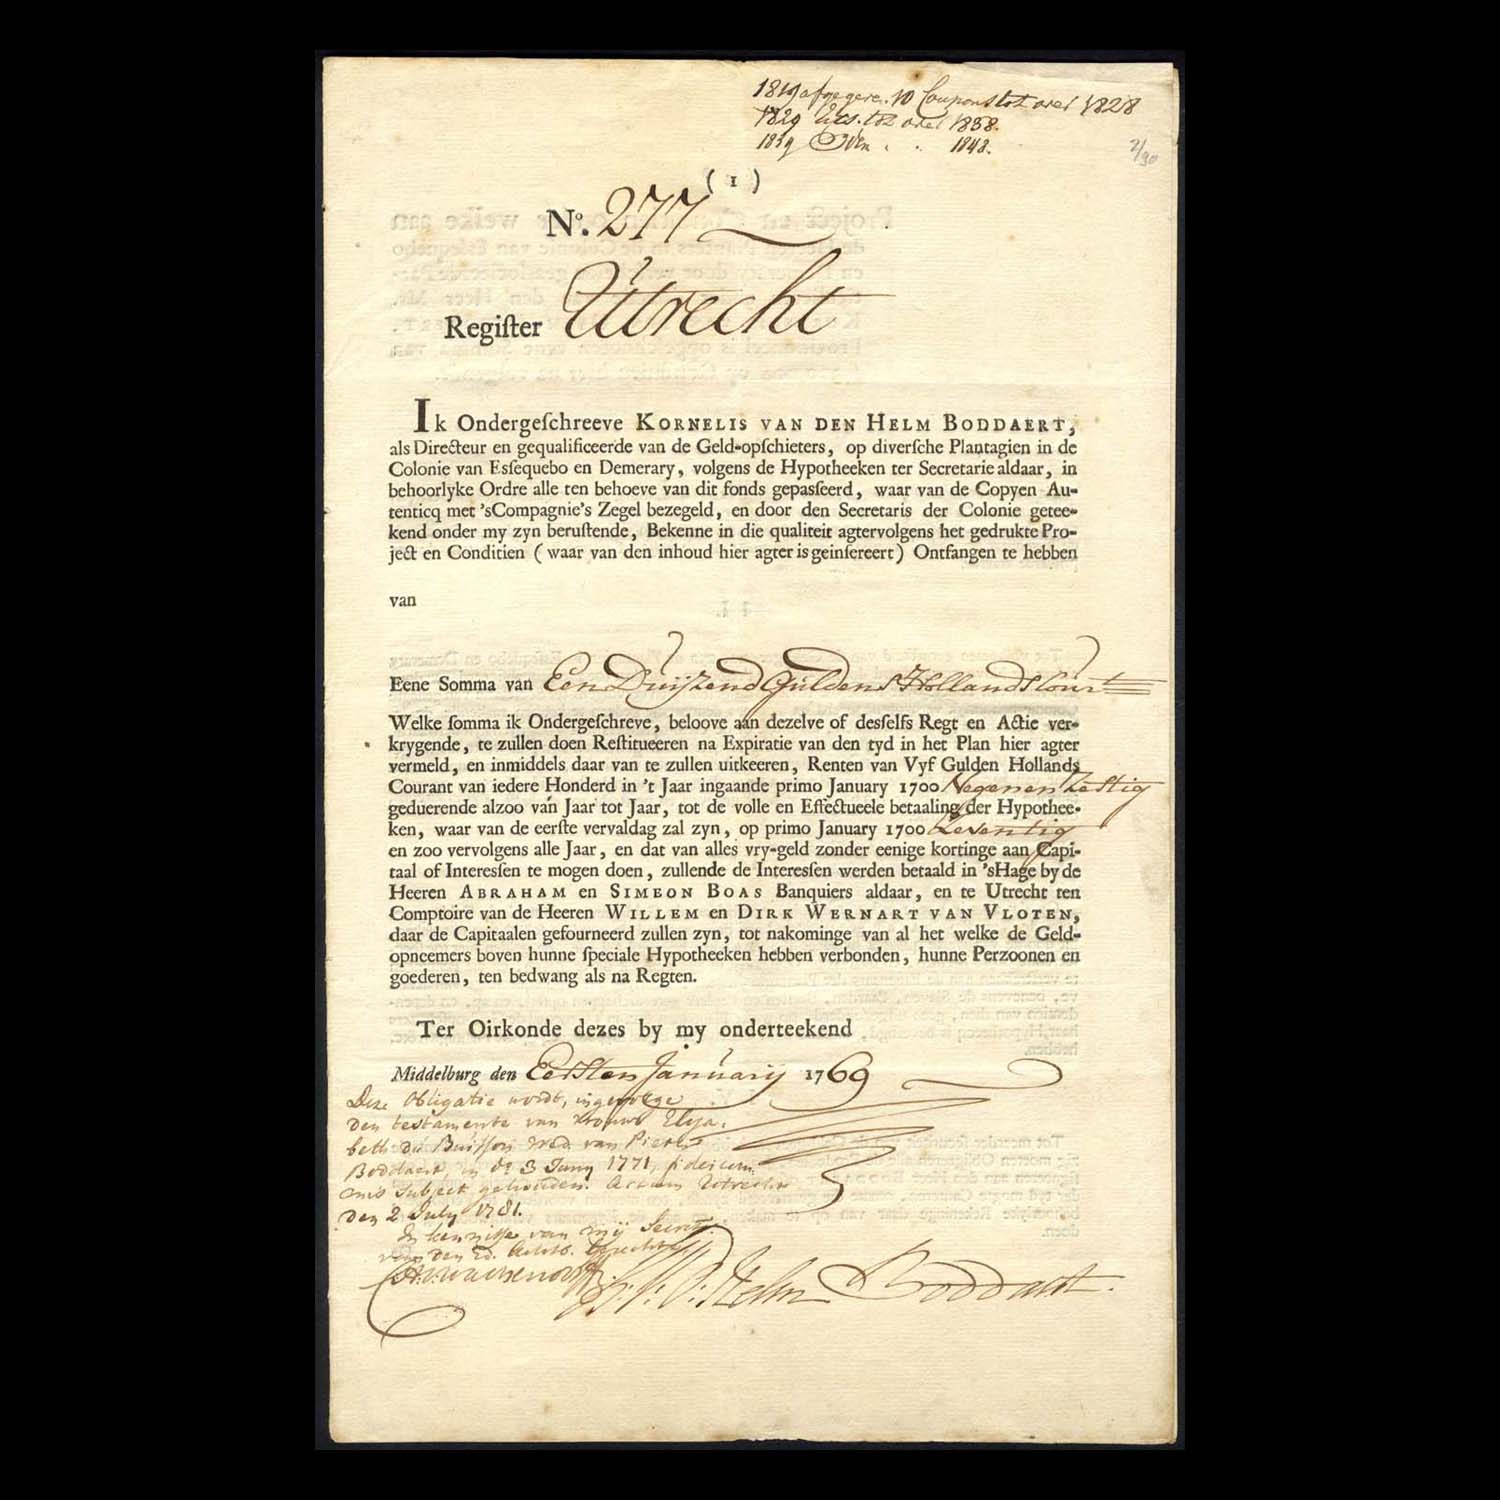 1819 afgegeven 10 Coupons tot over 1828
1829 tot over 1838.
1839 Idem . . 1848.
2/90
( 1 )
No. 277
Regiſter Utrecht
Ik Ondergeſchreeve KORNELIS VAN DEN HELM BODDAERT,
als Directeur en gequalificeerde van de Geld-opſchieters, op diverſche Plantagien in de
Colonie van Eſſequebo en Demerary, volgens de Hypotheeken ter Secretarie aldaar, in
behoorlyke Ordre alle ten behoeve van dit fonds gepaſſeerd, waar van de Copyen Au-
tenticq met 'sCompagnie's Zegel bezegeld, en door den Secretaris der Colonie getee-
kend onder my zyn beruſtende, Bekenne in die qualiteit agtervolgens het gedrukte Pro-
ject en Conditien (waar van den inhoud hier agter is geinſereert) Ontfangen te hebben
van
Eene Somma van Een Duijzend Guldens Hollands Cour.t
Welke ſomma ik Ondergeſchreve, beloove aan dezelve of desſelfs Regt en Actie ver-
krygende, te zullen doen Reſtitueeren na Expiratie van den tyd in het Plan hier agter
vermeld, en inmiddels daar van te zullen uitkeeren, Renten van Vyf Gulden Hollands
Courant van iedere Honderd in 't Jaar ingaande primo January 1700 Negen en Zestig
geduerende alzoo van Jaar tot Jaar, tot de volle en Effectueele betaaling der Hypothee-
ken, waar van de eerſte vervaldag zal zyn, op primo January 1700 Zeventig
en zoo vervolgens alle Jaar, en dat van alles vry-geld zonder eenige kortinge aan Capi-
taal of Intereſſen te mogen doen, zullende de Intereſſen werden betaald in 'sHage by de
Heeren ABRAHAM en SIMEON BOAS Banquiers aldaar, en te Utrecht ten
Comptoire van de Heeren WILLEM en DIRK WERNART VAN VLOTEN,
daar de Capitaalen gefourneerd zullen zyn, tot nakominge van al het welke de Geld-
opneemers boven hunne ſpeciale Hypotheeken hebben verbonden, hunne Perzoonen en
goederen, ten bedwang als na Regten.
Ter Oirkonde dezes by my onderteekend
Middelburg den Eersten Januarij 1769
Deze Obligatie wordt, ingevolge
den testamente van vrouwe Elisa-
beth du Buisson wed. van Pieter
Boddaert, in d° 3 Juny 1771, fideicom-
mis subject gehouden. Actum Utrecht
den 2 July 1781.
In kennisse van mij Secret.
van den Ed. Gerechte
K: V: D: Helm Boddaert.